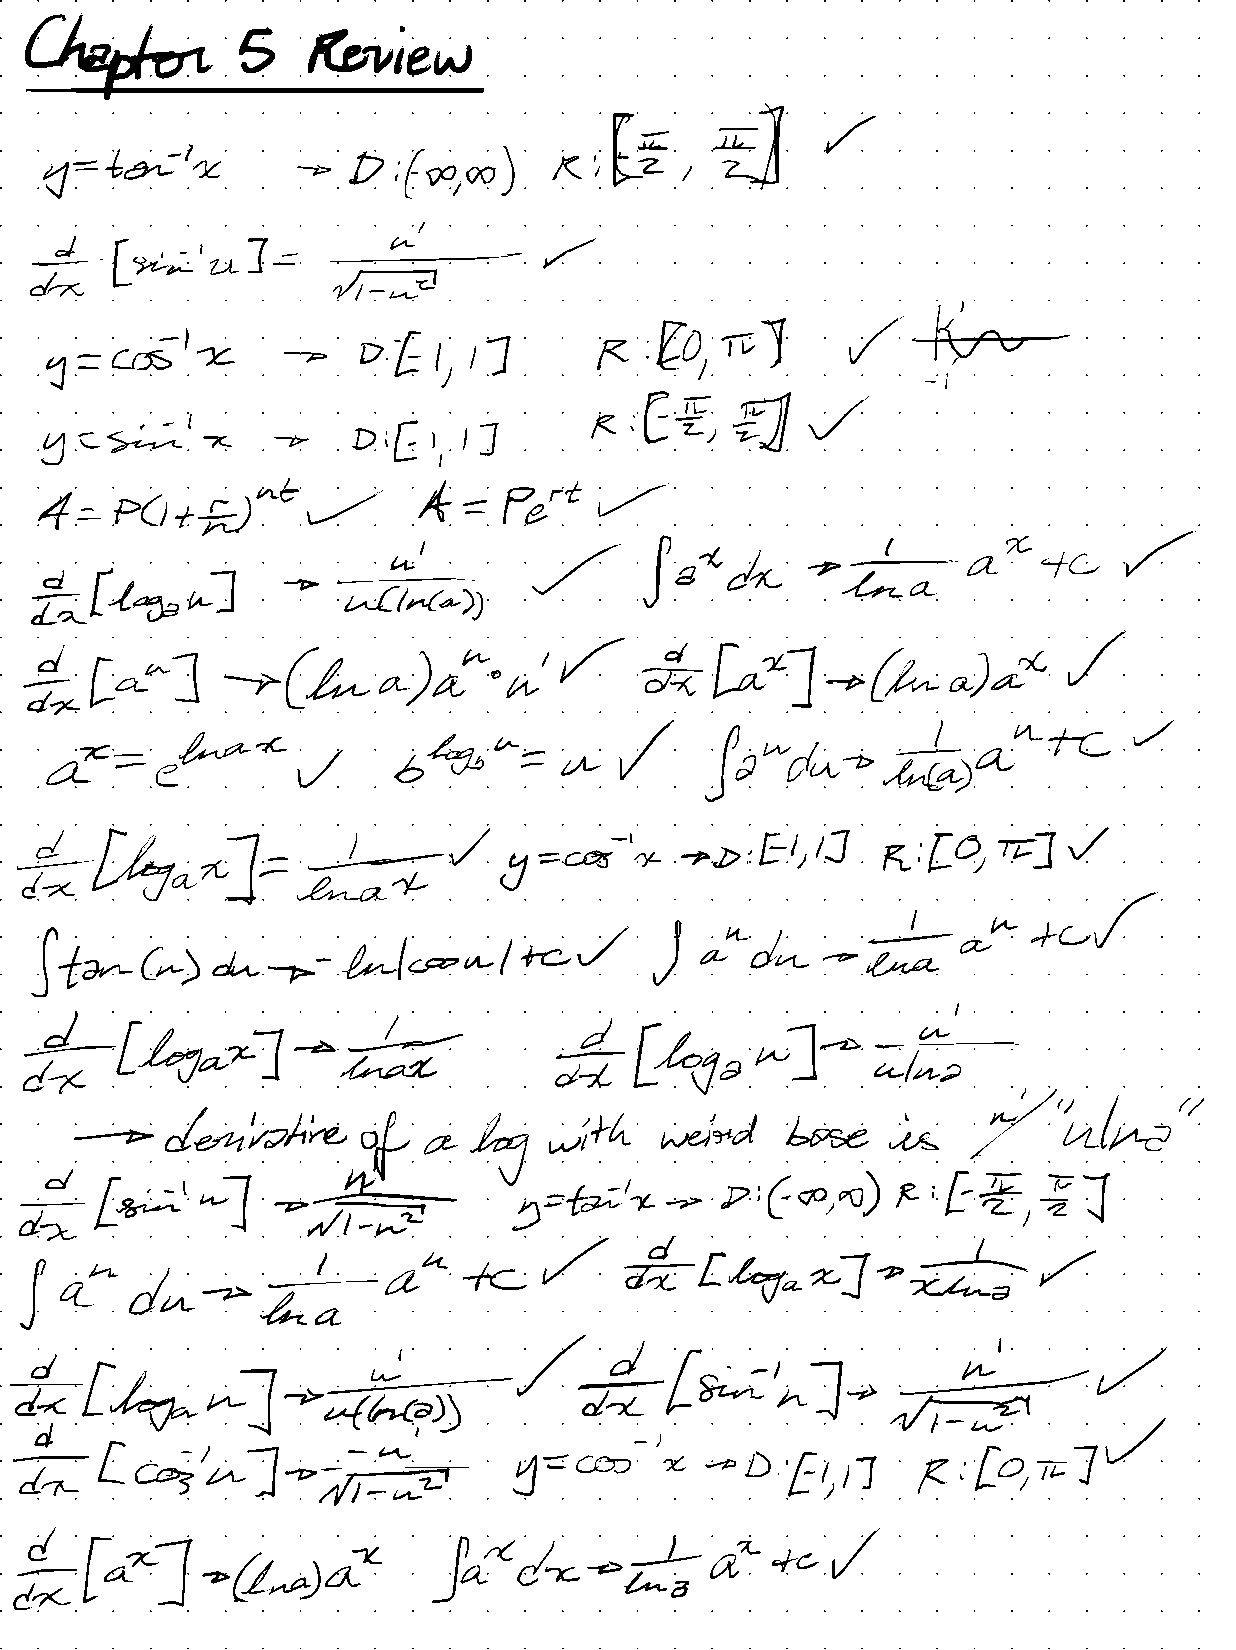 Chapter 5 Review
y=tan⁻¹x → D:(-∞,∞) R:[-π/2, π/2] ✓
d/dx [sin⁻¹u] = u'/√(1-u²) ✓
y=cos⁻¹x → D:[-1,1] R:[0,π] ✓ 1 -1
y=sin⁻¹x → D:[-1,1] R:[-π/2, π/2] ✓
A=P(1+r/n)^nt ✓ A=Pe^rt ✓
d/dx [logₐu] → u'/u(ln(a)) ✓ ∫a^x dx → 1/ln a a^x +C ✓
d/dx [a^u] → (ln a)a^u • u' ✓ d/dx [a^x] → (ln a)a^x ✓
a^x = e^lnax ✓ b^log_b u = u ✓ ∫a^u du → 1/ln(a) a^u +C ✓
d/dx [logₐx] = 1/lnax ✓ y=cos⁻¹x → D:[-1,1] R:[0,π] ✓
∫tan(u) du → -ln|cosu|+C ✓ ∫a^u du → 1/lna a^u +C ✓
d/dx [logₐx] → 1/lnax d/dx [logₐu] → u'/ulna
→ derivative of a log with weird base is u'/"ulna"
d/dx [sin⁻¹u] → u'/√(1-u²) y=tan⁻¹x → D:(-∞,∞) R:[-π/2, π/2]
∫a^u du → 1/ln a a^u +C ✓ d/dx [logₐx] → 1/xlna ✓
d/dx [logₐu] → u'/u(ln(a)) ✓ d/dx [sin⁻¹u] → u'/√(1-u²) ✓
d/dx [cos⁻¹u] → -u'/√(1-u²) y=cos⁻¹x → D:[-1,1] R:[0,π] ✓
d/dx [a^x] → (lna)a^x ∫a^x dx → 1/lna a^x +C ✓